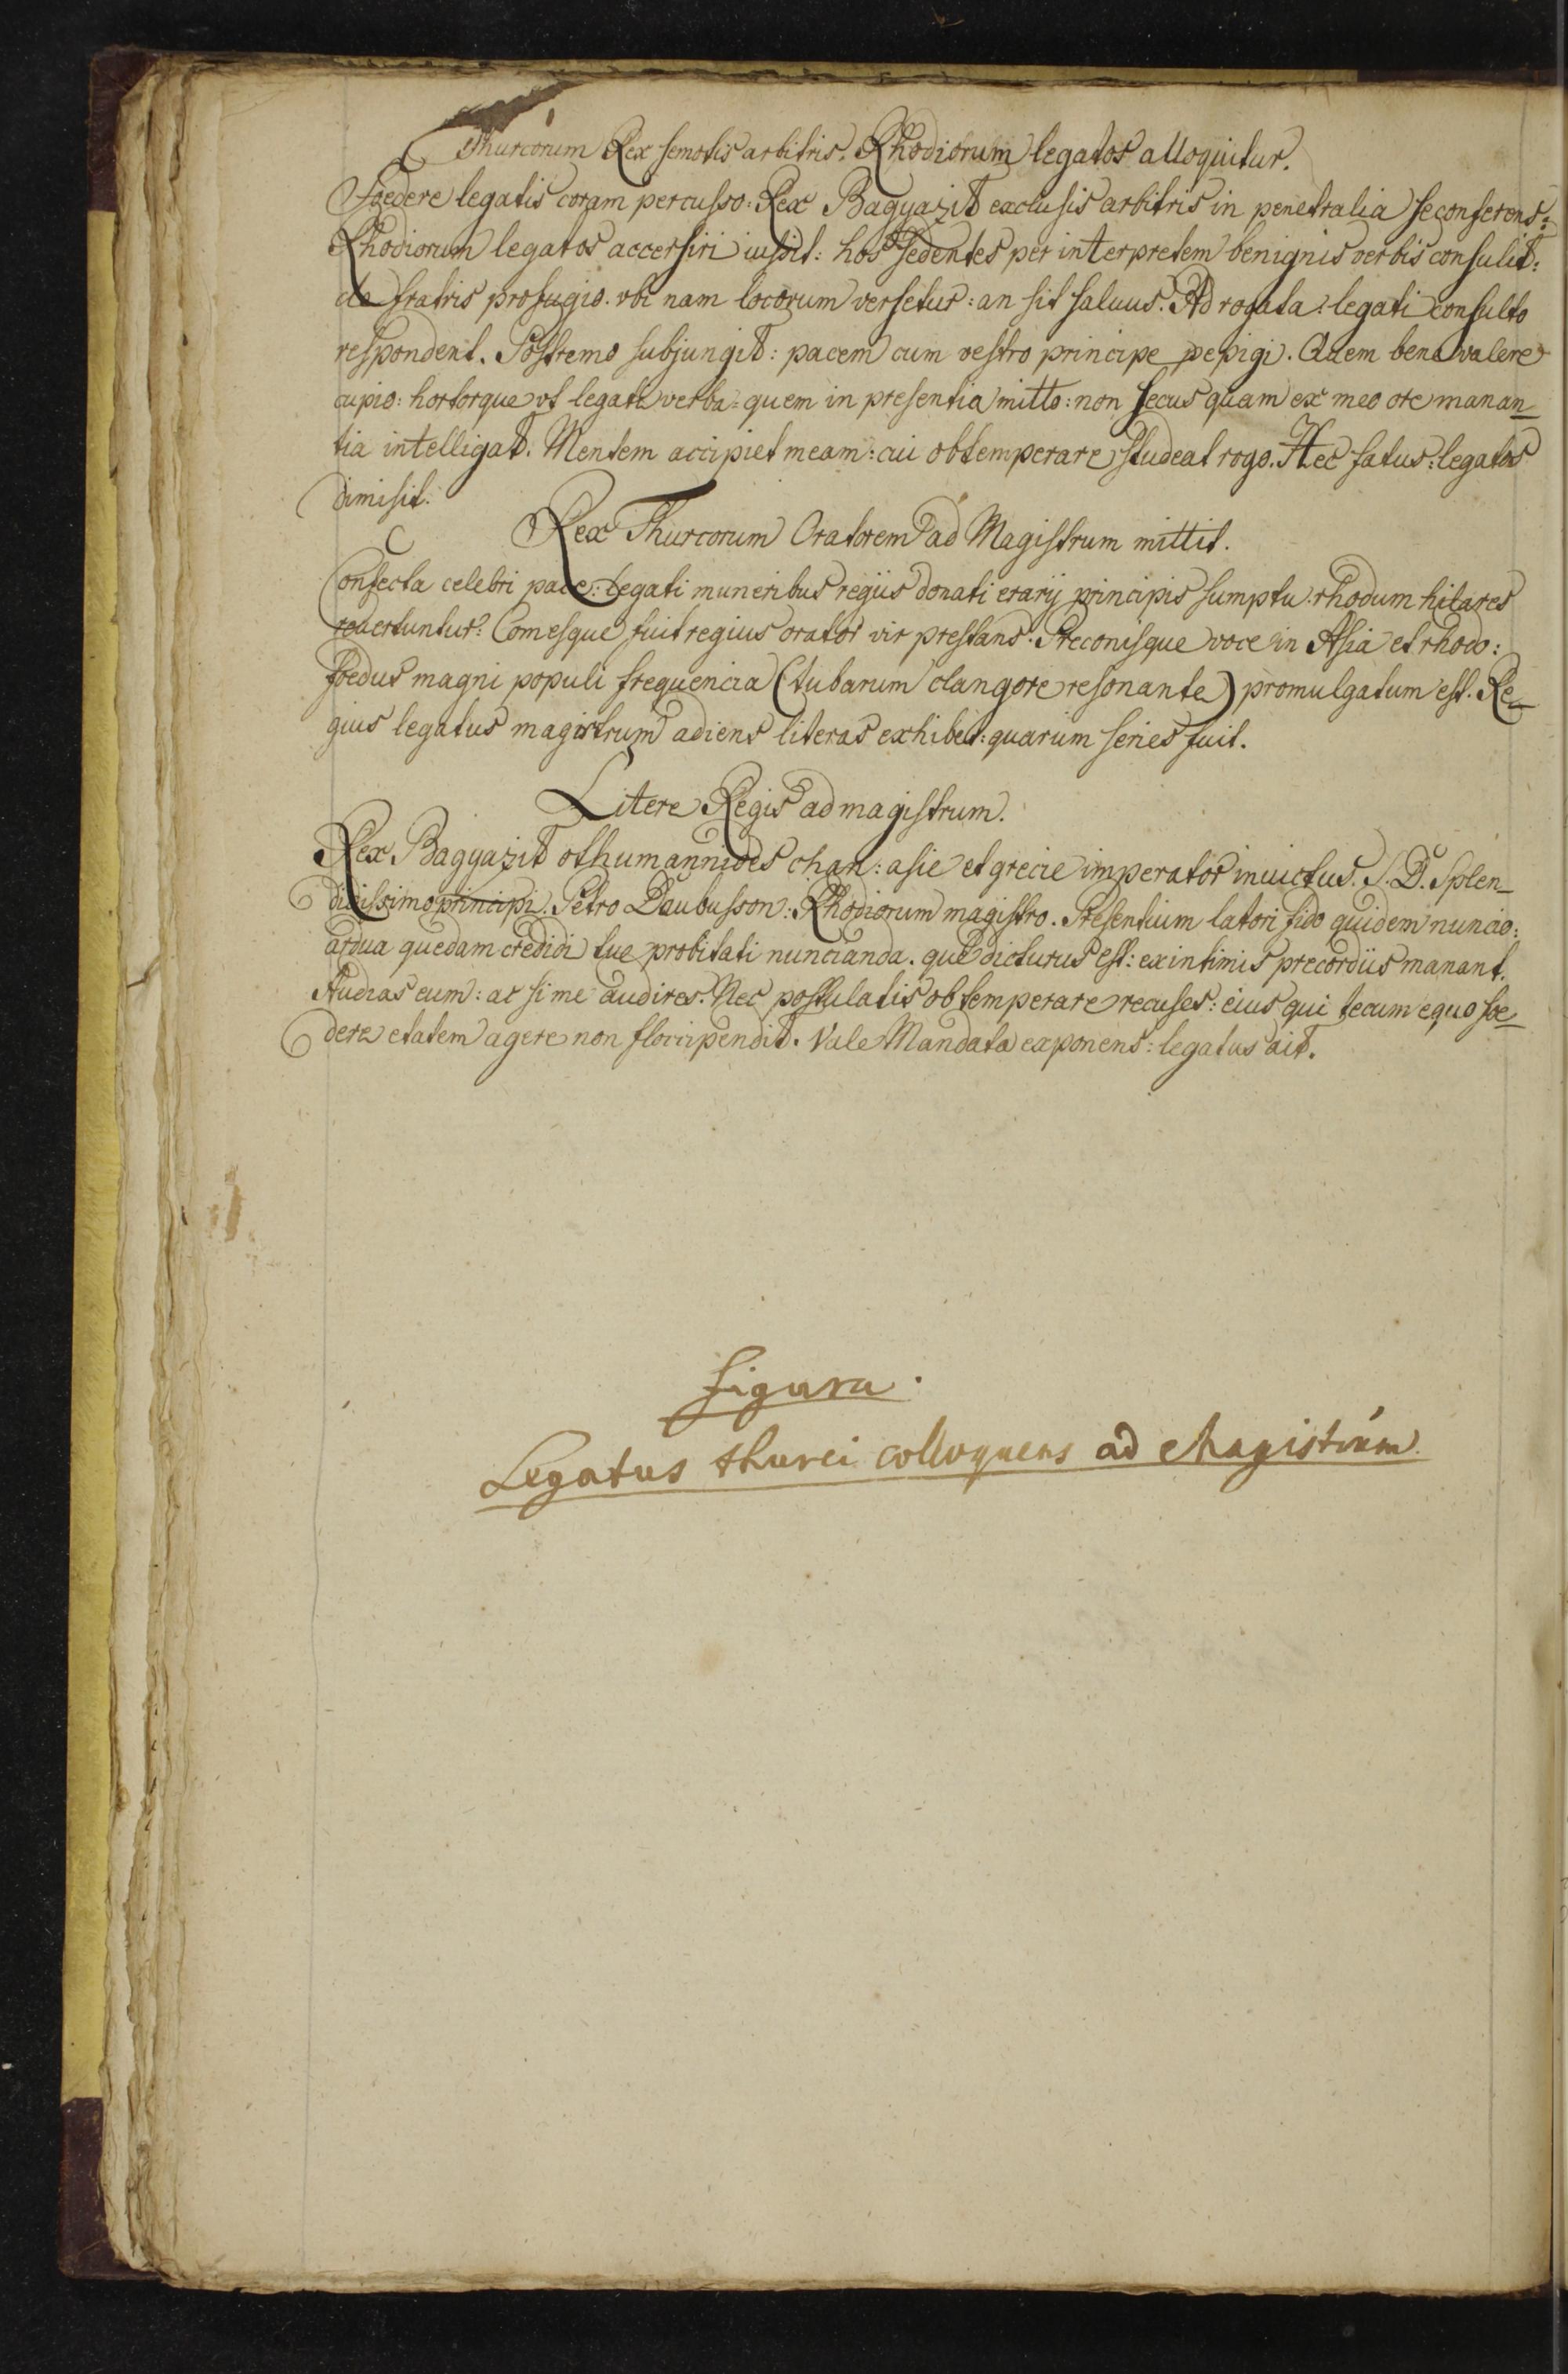 Thurcorum Rex semotis arbitris. Rhodiorum legatos alloquitur.
Foedere legatis coram percusso: Rex Bagyazit exclusis arbitris in penetralia se conferens:
Rhodiorum legatos accersiri iussit: hos sedentes per interpretem benignis verbis consulit:
de fratris profugio. vbi nam locorum versetur: an sit saluus. Ad rogata: legati consulto
respondent. Postremo subjungit: pacem cum vestro principe pepigi. Quem bene valere
cupio: hortorque vt legati verba: quem in presentia mitto: non secus quam ex meo ore manan_
tia intelligat. Mentem accipiet meam: cui obtemperare studeat rogo. Hec fatus: legatos
dimisit.
Rex Thurcorum Oratorem ad Magistrum mittit.
Confecta celebri pace: Legati muneribus regiis donati erarij principis sumptu rhodum hilares
revertuntur: Comesque fuit regius orator vir prestans. Preconisque voce in Asia et rhodo:
foedus magni populi frequencia (tubarum clangore resonante) promulgatum est. Re_
gius legatus magistrum adiens literas exhibet: quarum series fuit.
Litere Regis ad magistrum.
Rex Bagyazit othumannides chan: asie et grecie imperator inuictus. S. D. Splen_
didissimo principi. Petro Daubusson: Rhodiorum magistro. Presentium latori fido quidem nuncio:
ardua quedam credidi tue probitati nuncianda. que dicturus est: ex intimis precordiis manant.
Audias eum: ac si me audires. Nec postulatis obtemperare recuses: eius qui tecum equo foe_
dere etatem agere non floccipendit. Vale Mandata exponens: legatus ait.
figura.
Legatus thurci colloquens ad Magistrum.